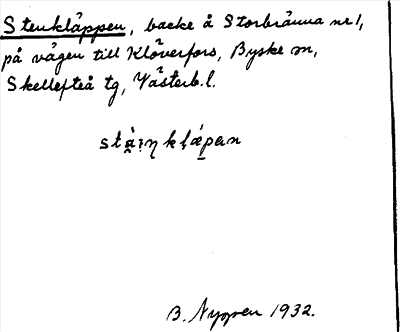 Stenkläppen, backe å Storbränna nr 1,
på vägen till Klöverfors, Byske sn,
Skellefteå tg, Västerb. l.
B. Nygren 1932.